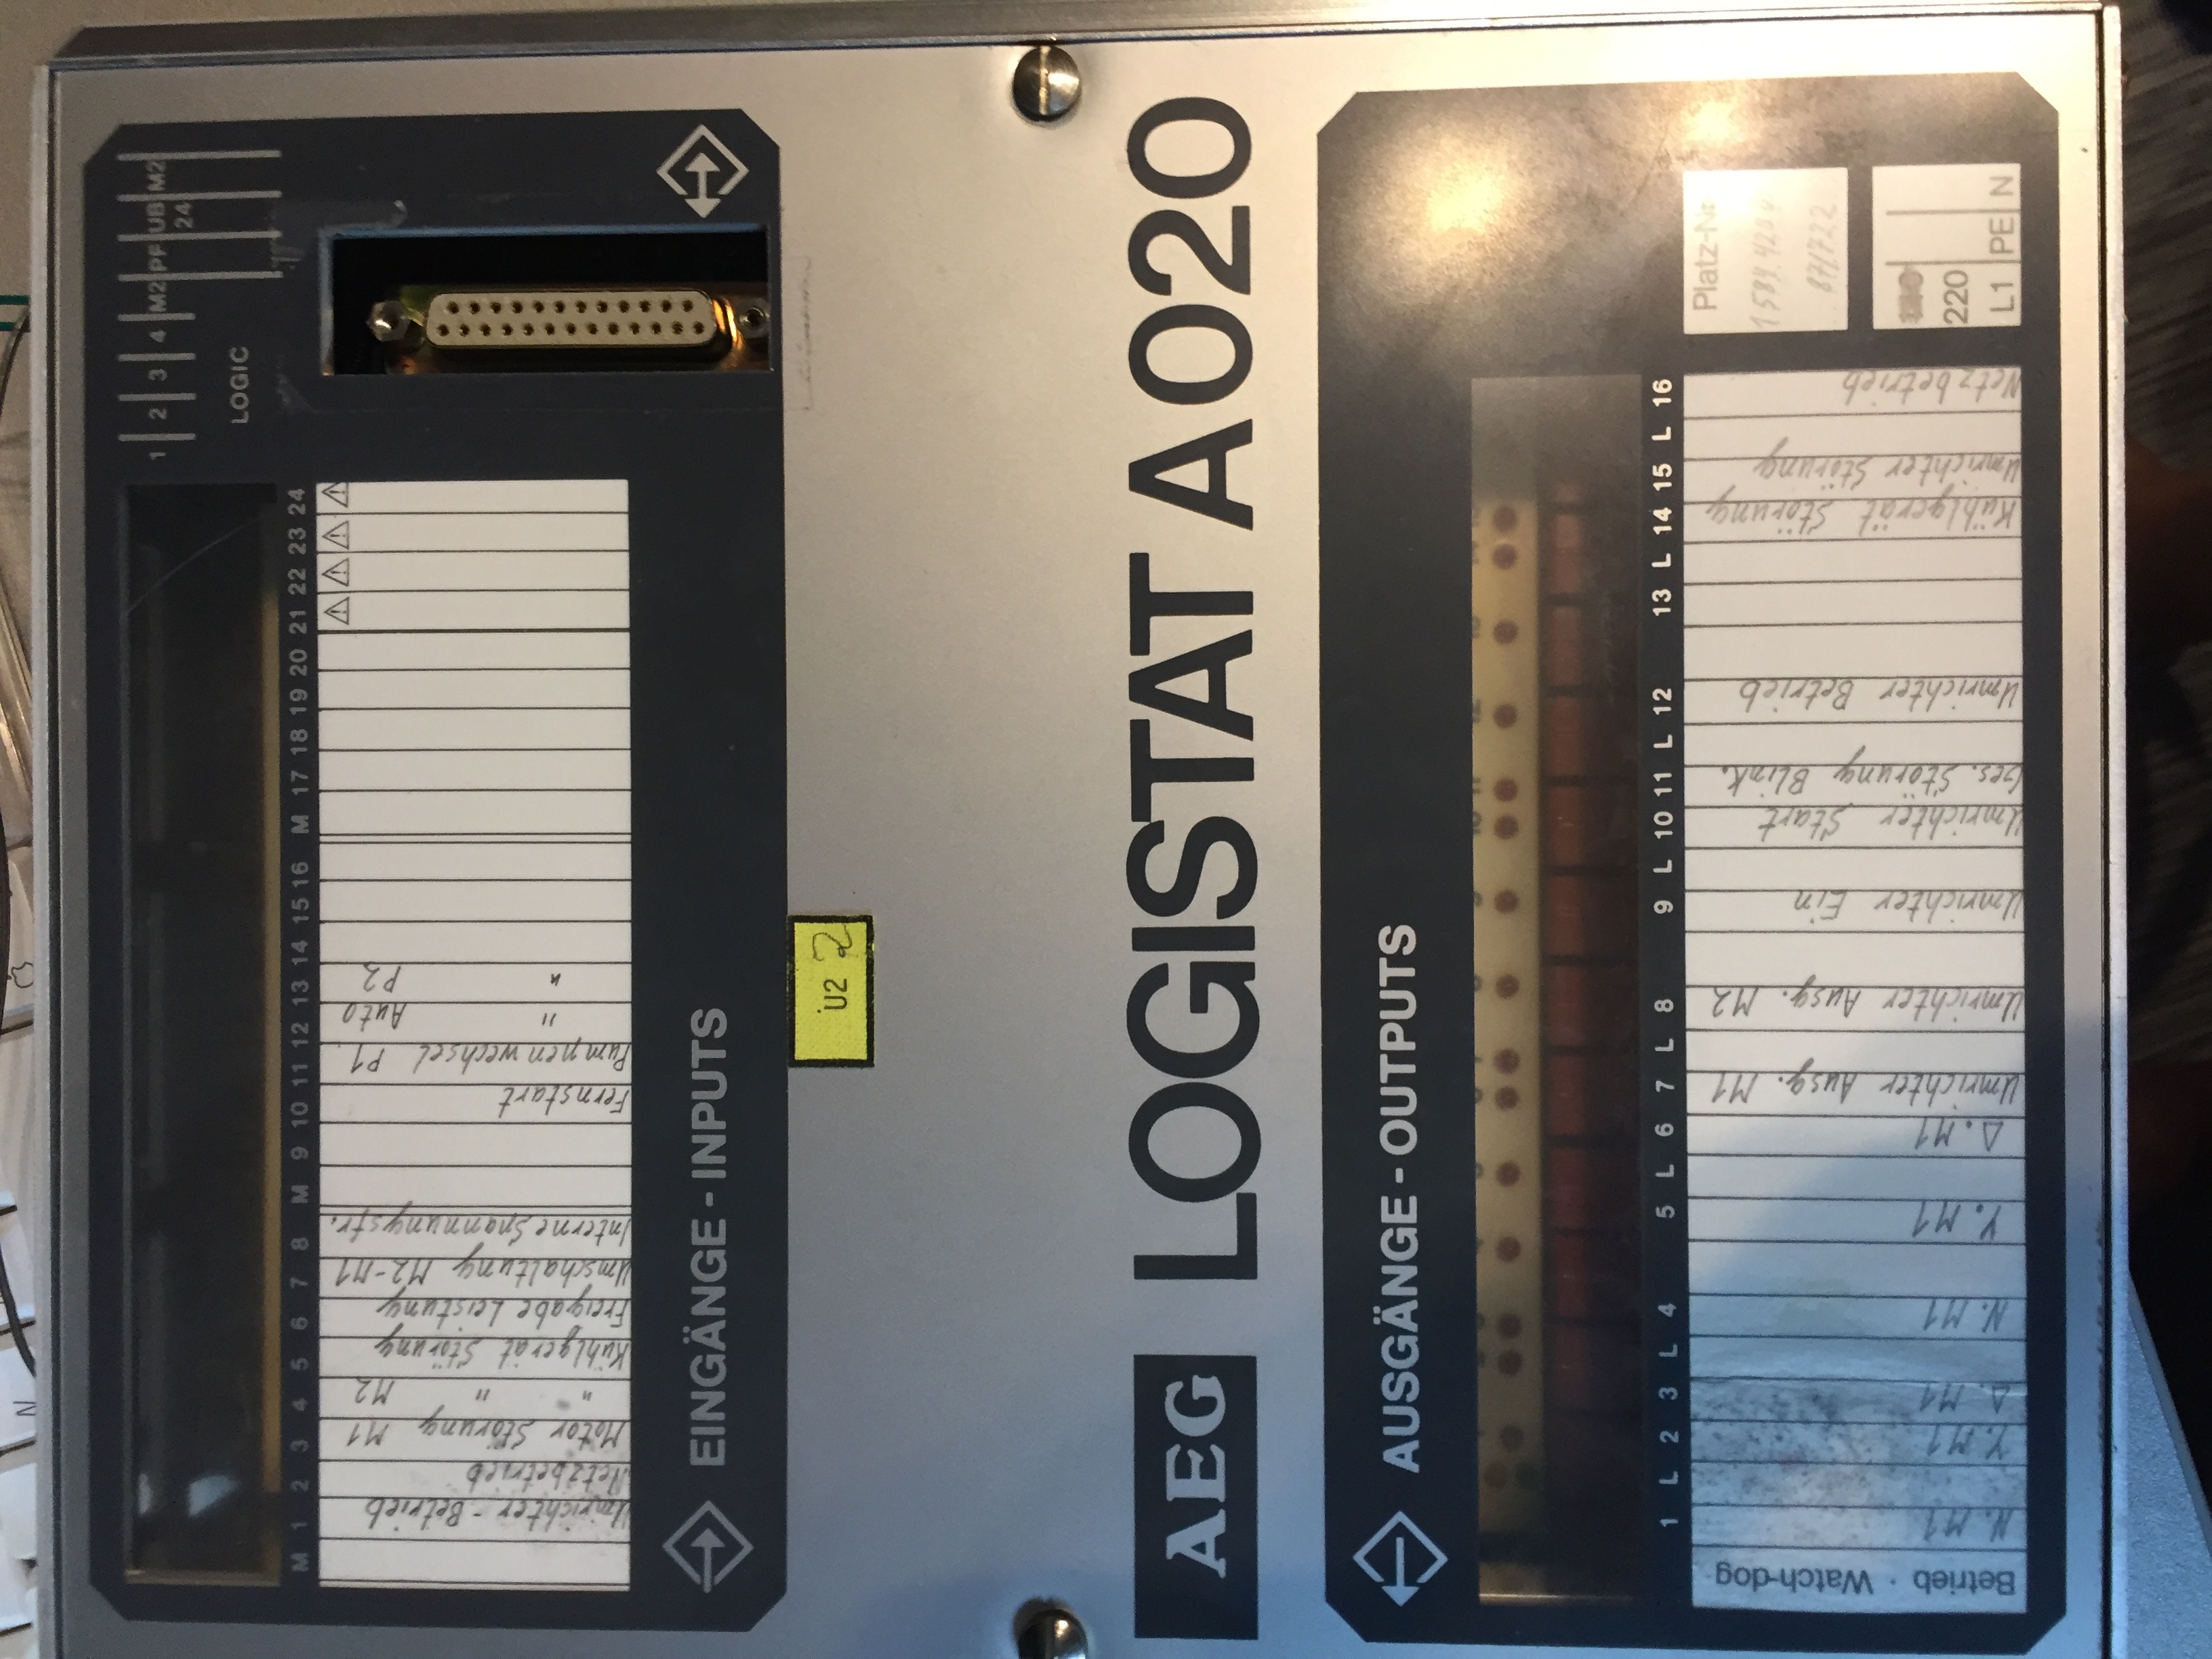 N
1 2 3 4 M2 PF UB 24 M2
LOGIC
M 1 2 3 4 5 6 7 8 M 9 10 11 12 13 14 15 16 M 17 18 19 20 21 22 23 24
Umrichter-Betrieb
Netzbetrieb
Motor Störung M1
" " M2
Kühlgerät Störung
Freigabe Leistung
Umschaltung M2-M1
Interne Spannungstr.
Fernstart
Pumpenwechsel P1
" Auto
" P2
EINGÄNGE - INPUTS
U2 2
AEG LOGISTAT A020
AUSGÄNGE - OUTPUTS
1 L 2 3 L 4 5 L 6 7 L 8 9 L 10 11 L 12 13 L 14 15 L 16
Betrieb · Watch-dog
N. M1
Y. M1
Δ. M1
N. M1
Y. M1
Δ. M1
Umrichter Ausg. M1
Umrichter Ausg. M2
Umrichter Ein
Umrichter Start
Ges. Störung Blink.
Umrichter Betrieb
Kühlgerät Störung
Umrichter Störung
Netzbetrieb
Platz-Nr
87/722
220
L1 PE N